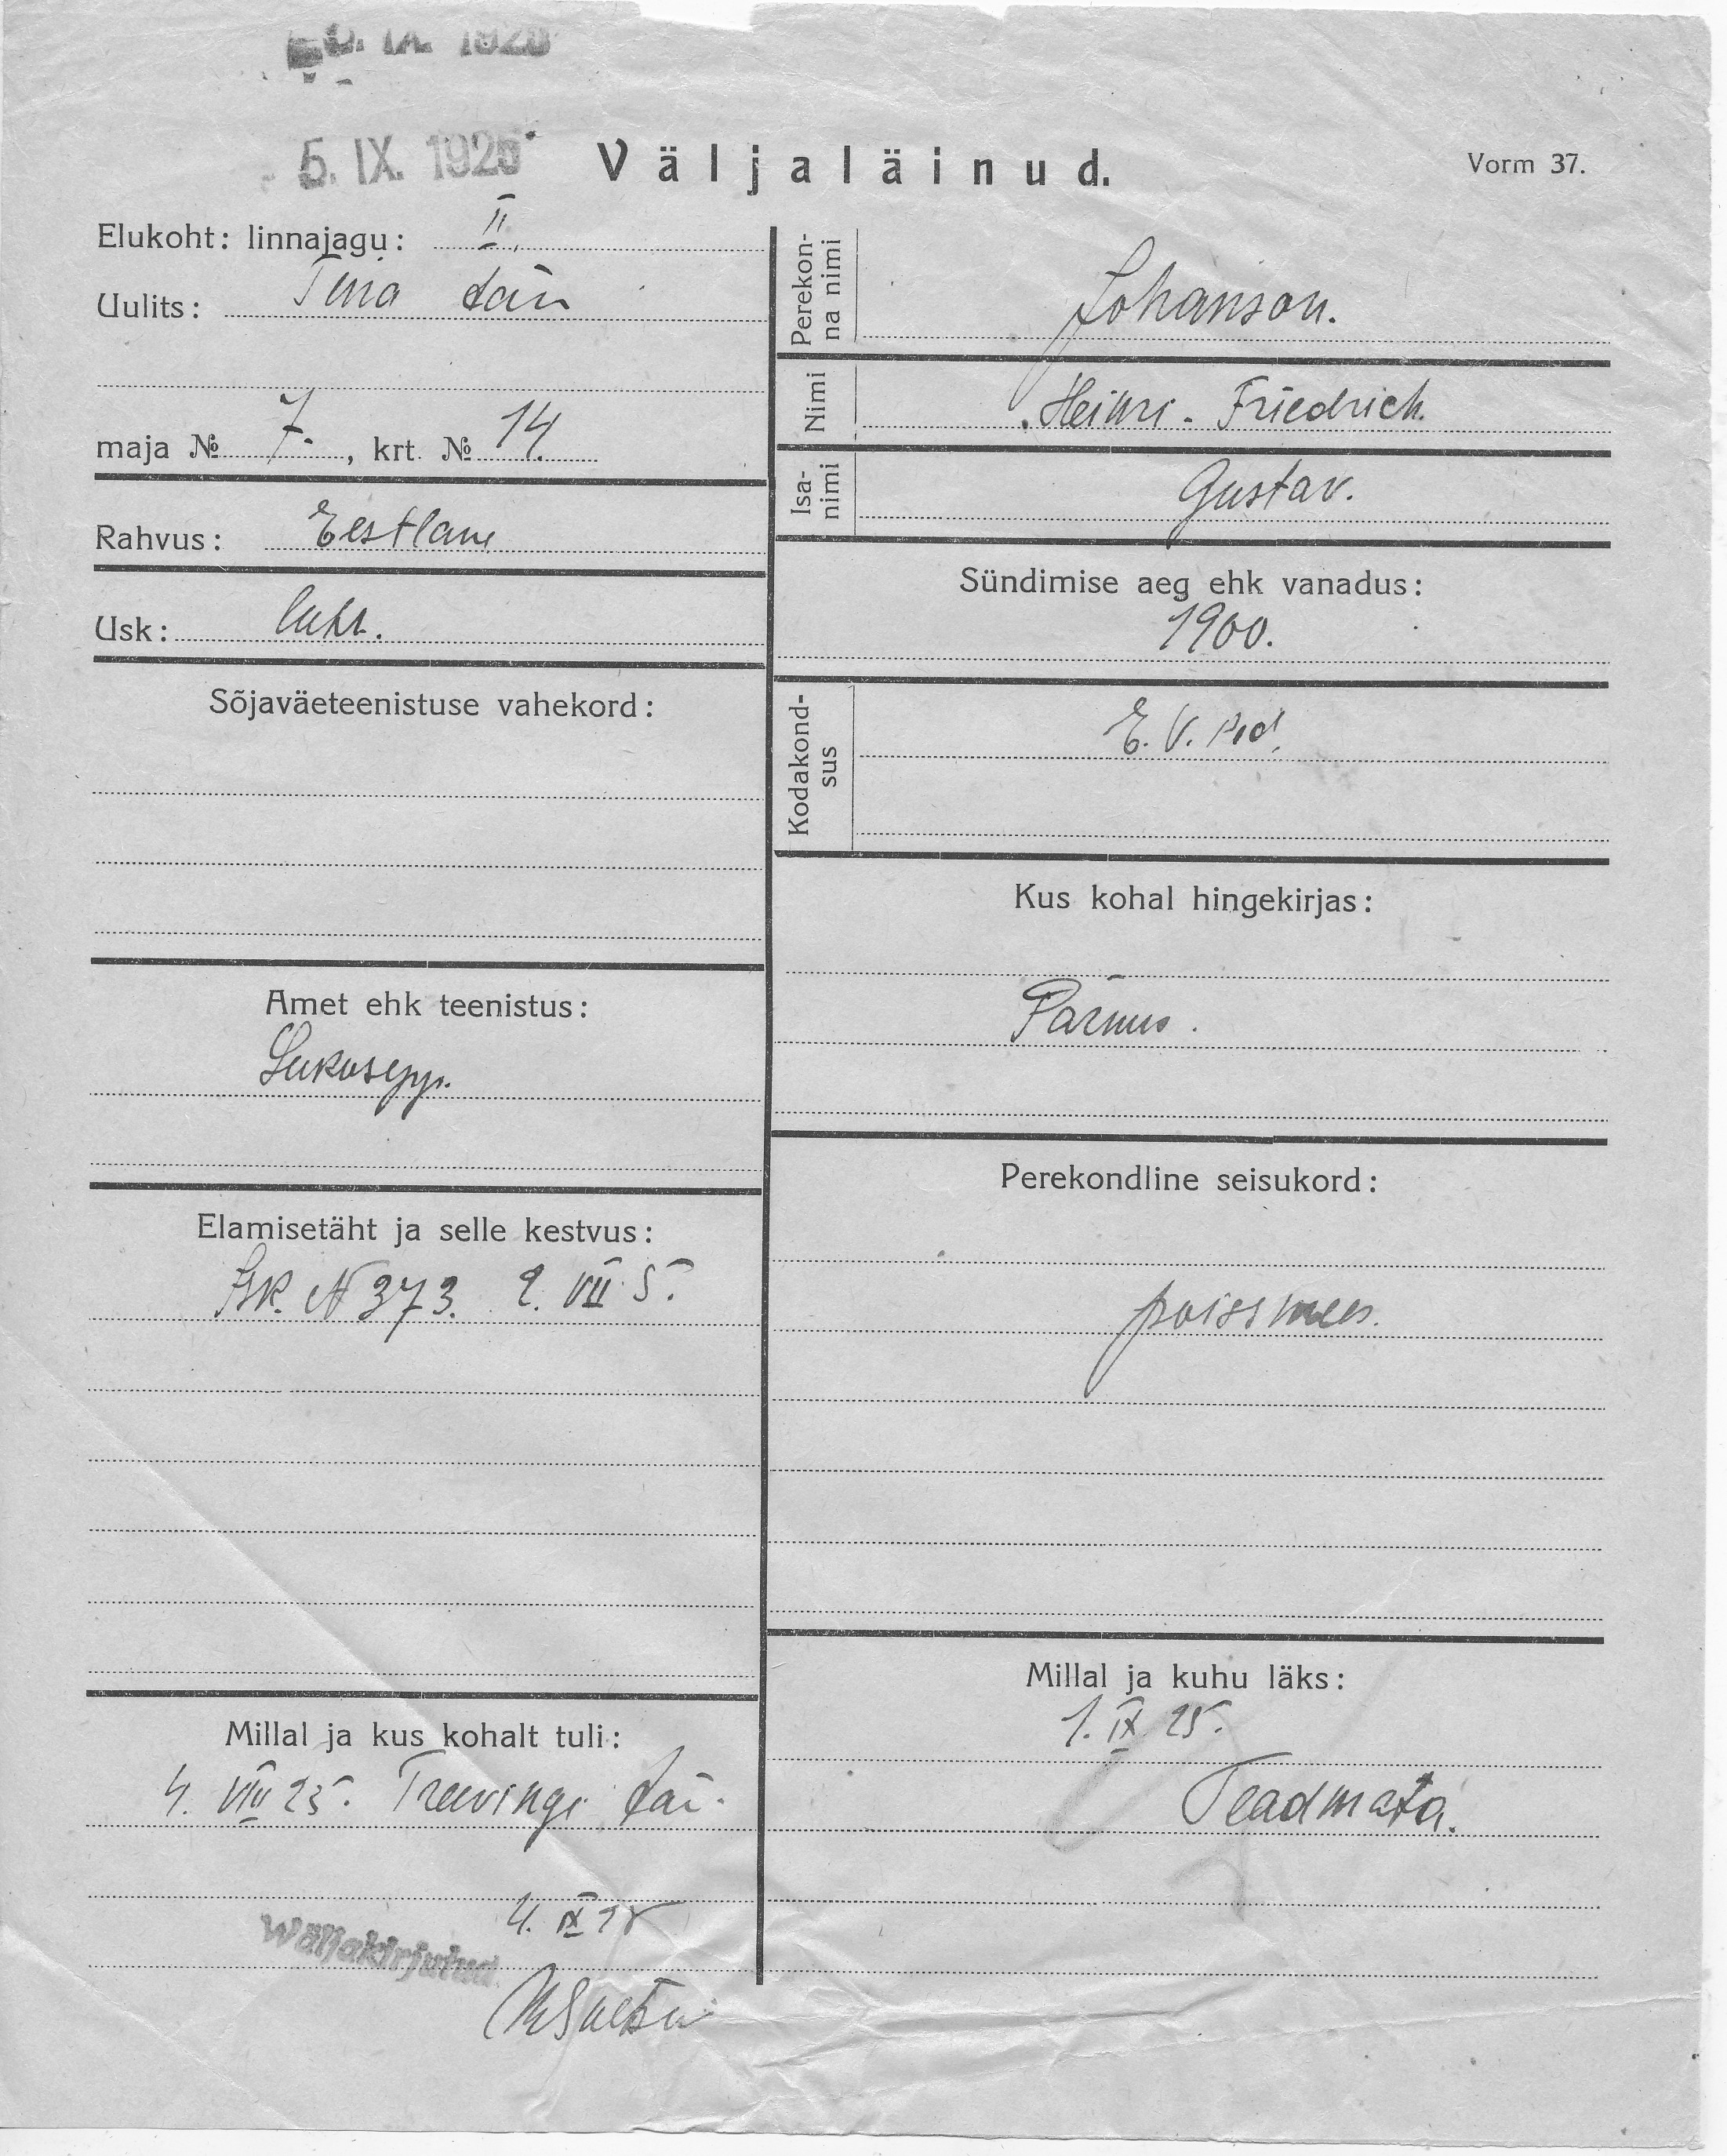 5. IX. 1925
Väljaläinud.
Vorm 37.
Elukoht: linnajagu: II.
Uulits: Tina tän
maja № 7., krt. № 14.
Rahvus: Eestlane
Usk: luht.
Sõjaväeteenistuse vahekord:
Amet ehk teenistus:
Lukusepp.
Elamisetäht ja selle kestvus:
N 373. 2. VII 5.
Millal ja kus kohalt tuli:
4. VIII 25. tän.
4. IX 25
Wäljakirjutud
Perekonna nimi
Johanson.
Nimi
Heinri - Friedrich.
Isanimi
Gustav.
Sündimise aeg ehk vanadus:
1900.
Kodakondsus
E. V. kod.
Kus kohal hingekirjas:
Pärnus.
Perekondline seisukord:
poissmees.
Millal ja kuhu läks:
1. IX 25.
Teadmata.